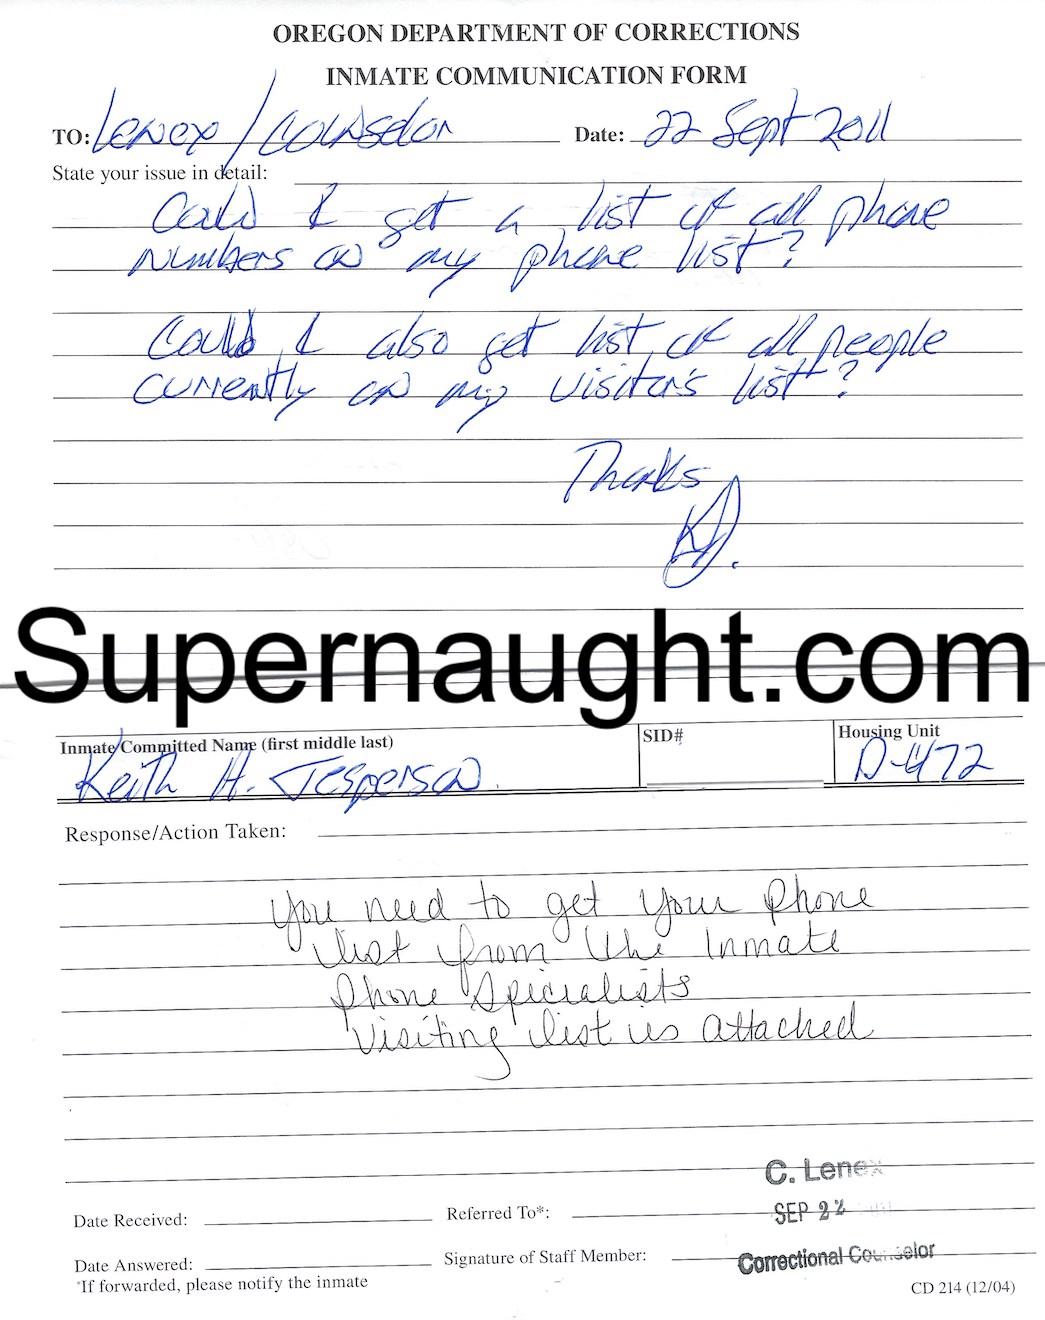 OREGON DEPARTMENT OF CORRECTIONS
INMATE COMMUNICATION FORM
TO: Lenex / Counselor Date: 22 Sept 2011
State your issue in detail:
Could I get a list of all phone
numbers on my phone list?
Could I also get list of all people
currently on my visitor's list?
Thanks
KJ.
Supernaught.com
Inmate Committed Name (first middle last) SID# Housing Unit
Keith H. Jesperson D-472
Response/Action Taken:
You need to get your phone
list from the Inmate
Phone Specialists
Visiting list is attached
C. Lenex
Date Received: Referred To*: SEP 22
Date Answered: Signature of Staff Member: Correctional Counselor
*If forwarded, please notify the inmate
CD 214 (12/04)